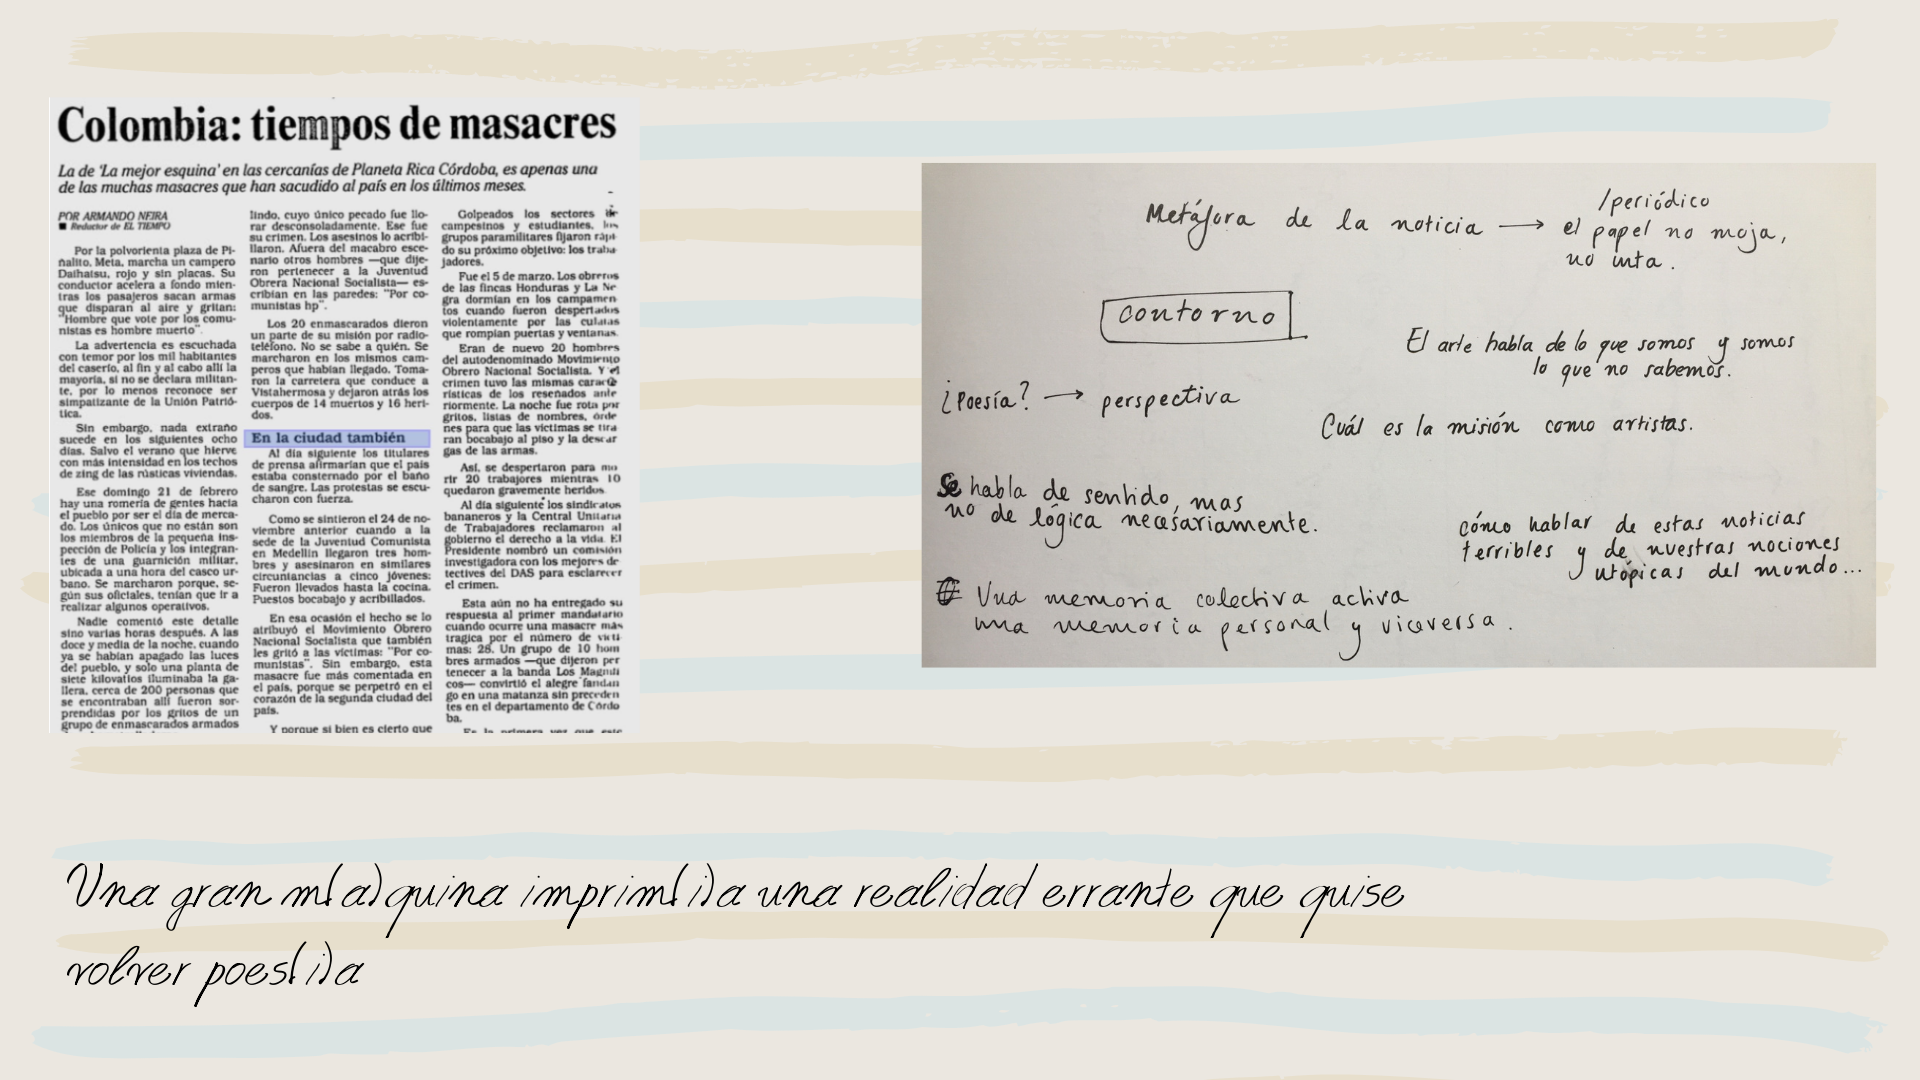 Colombia: tiempos de masacres
La de 'La mejor esquina' en las cercanías de Planeta Rica Córdoba, es apenas una
de las muchas masacres que han sacudido al país en los últimos meses.
POR ARMANDO NEIRA
■ Redactor de EL TIEMPO
Por la polvorienta plaza de Pi-
ñalito, Meta, marcha un campero
Daihatsu, rojo y sin placas. Su
conductor acelera a fondo mien-
tras los pasajeros sacan armas
que disparan al aire y gritan:
"Hombre que vote por los comu-
nistas es hombre muerto".
La advertencia es escuchada
con temor por los mil habitantes
del caserío, al fin y al cabo allí la
mayoría, si no se declara militan-
te, por lo menos reconoce ser
simpatizante de la Unión Patrió-
tica.
Sin embargo, nada extraño
sucede en los siguientes ocho
días. Salvo el verano que hierve
con más intensidad en los techos
de zing de las rústicas viviendas.
Ese domingo 21 de febrero
hay una romería de gentes hacia
el pueblo por ser el día de merca-
do. Los únicos que no están son
los miembros de la pequeña ins-
pección de Policía y los integran-
tes de una guarnición militar,
ubicada a una hora del casco ur-
bano. Se marcharon porque, se-
gún sus oficiales, tenían que ir a
realizar algunos operativos.
Nadie comentó este detalle
sino varias horas después. A las
doce y media de la noche, cuando
ya se habían apagado las luces
del pueblo, y solo una planta de
siete kilovatios iluminaba la ga-
llera, cerca de 200 personas que
se encontraban allí fueron sor-
prendidas por los gritos de un
grupo de enmascarados armados
lindo, cuyo único pecado fue llo-
rar desconsoladamente. Ese fue
su crimen. Los asesinos lo acribi-
llaron. Afuera del macabro esce-
nario otros hombres —que dije-
ron pertenecer a la Juventud
Obrera Nacional Socialista— es-
cribían en las paredes: "Por co-
munistas hp".
Los 20 enmascarados dieron
un parte de su misión por radio-
teléfono. No se sabe a quién. Se
marcharon en los mismos cam-
peros que habían llegado. Toma-
ron la carretera que conduce a
Vistahermosa y dejaron atrás los
cuerpos de 14 muertos y 16 heri-
dos.
En la ciudad también
Al día siguiente los titulares
de prensa afirmarían que el país
estaba consternado por el baño
de sangre. Las protestas se escu-
charon con fuerza.
Como se sintieron el 24 de no-
viembre anterior cuando a la
sede de la Juventud Comunista
en Medellín llegaron tres hom-
bres y asesinaron en similares
circuntancias a cinco jóvenes:
Fueron llevados hasta la cocina.
Puestos bocabajo y acribillados.
En esa ocasión el hecho se lo
atribuyó el Movimiento Obrero
Nacional Socialista que también
les gritó a las víctimas: "Por co-
munistas". Sin embargo, esta
masacre fue más comentada en
el país, porque se perpetró en el
corazón de la segunda ciudad del
país.
Y porque si bien es cierto que
Golpeados los sectores de
campesinos y estudiantes, los
grupos paramilitares fijaron rápi-
do su próximo objetivo: los traba-
jadores.
Fue el 5 de marzo. Los obreros
de las fincas Honduras y La Ne-
gra dormían en los campamen-
tos cuando fueron despertados
violentamente por las culatas
que rompían puertas y ventanas.
Eran de nuevo 20 hombres
del autodenominado Movimiento
Obrero Nacional Socialista. Y el
crimen tuvo las mismas caracte-
rísticas de los reseñados ante-
riormente. La noche fue rota por
gritos, listas de nombres, órde-
nes para que las víctimas se tira-
ran bocabajo al piso y la descar-
gas de las armas.
Así, se despertaron para mo-
rir 20 trabajores mientras 10
quedaron gravemente heridos.
Al día siguiente los sindicatos
bananeros y la Central Unitaria
de Trabajadores reclamaron al
gobierno el derecho a la vida. El
Presidente nombró un comisión
investigadora con los mejores de-
tectives del DAS para esclarecer
el crimen.
Esta aún no ha entregado su
respuesta al primer mandatario
cuando ocurre una masacre más
tragica por el número de vícti-
mas: 28. Un grupo de 10 hom-
bres armados —que dijeron per-
tenecer a la banda Los Magnífi-
cos— convirtió el alegre fandan-
go en una matanza sin preceden-
tes en el departamento de Córdo-
ba.
Es la primera vez que este
Metáfora de la noticia → el papel no moja,
/periódico
no inta.
contorno
El arte habla de lo que somos y somos
lo que no sabemos.
¿Poesía? → perspectiva
Cuál es la misión como artistas.
Se habla de sentido, mas
no de lógica necesariamente.
cómo hablar de estas noticias
terribles y de nuestras nociones
utópicas del mundo...
Una memoria colectiva activa
una memoria personal y viceversa.
Una gran m(a)quina imprim(i)a una realidad errante que quise
volver poes(i)a